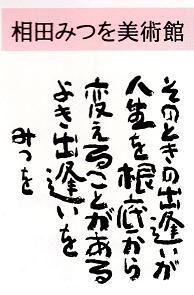 相田みつを美術館
そのときの出逢いが
人生を根底から
変えることがある
よき出逢いを
みつを